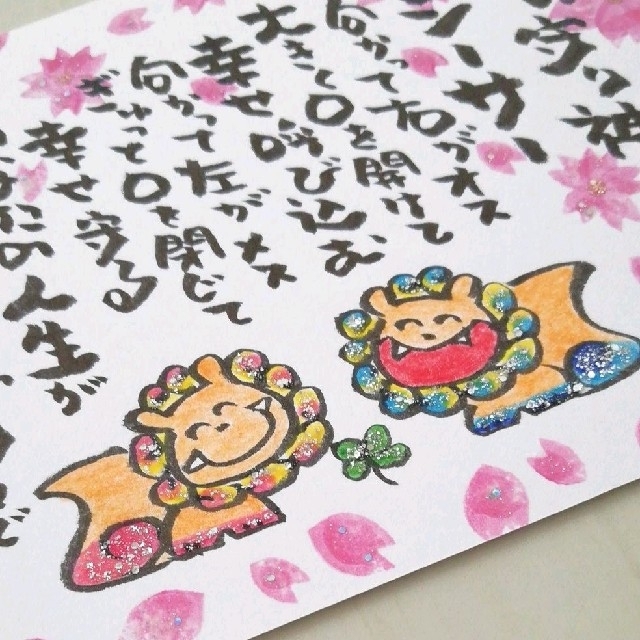 守り神
シーサー
向かって右がオス
大きく口を開けて
幸せ呼び込む
向かって左がメス
ぎゅっと口を閉じて
幸せ守る
人生が